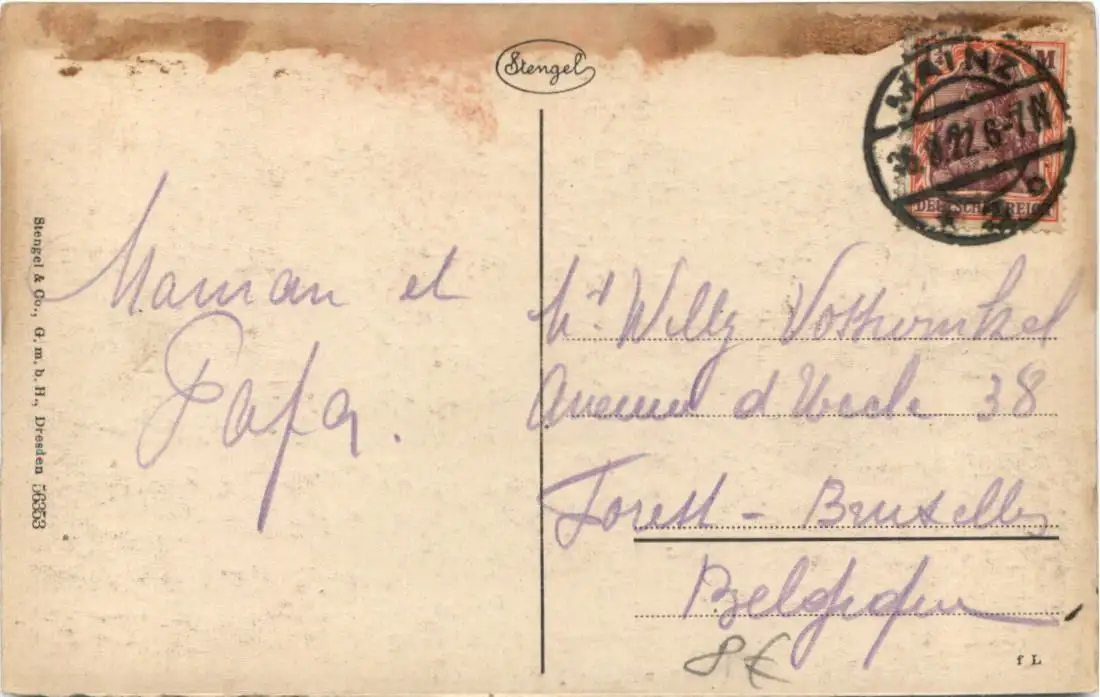 Stengel
M
MAINZ
22.6-7N
DEUTSCHES REICH
Maman et
Papa.
Mr Willy Vothwinkel
Avenue d'Uccle 38
Forest - Bruxelles
Belgique
8€
f L
Stengel & Co., G. m. b. H., Dresden 56353